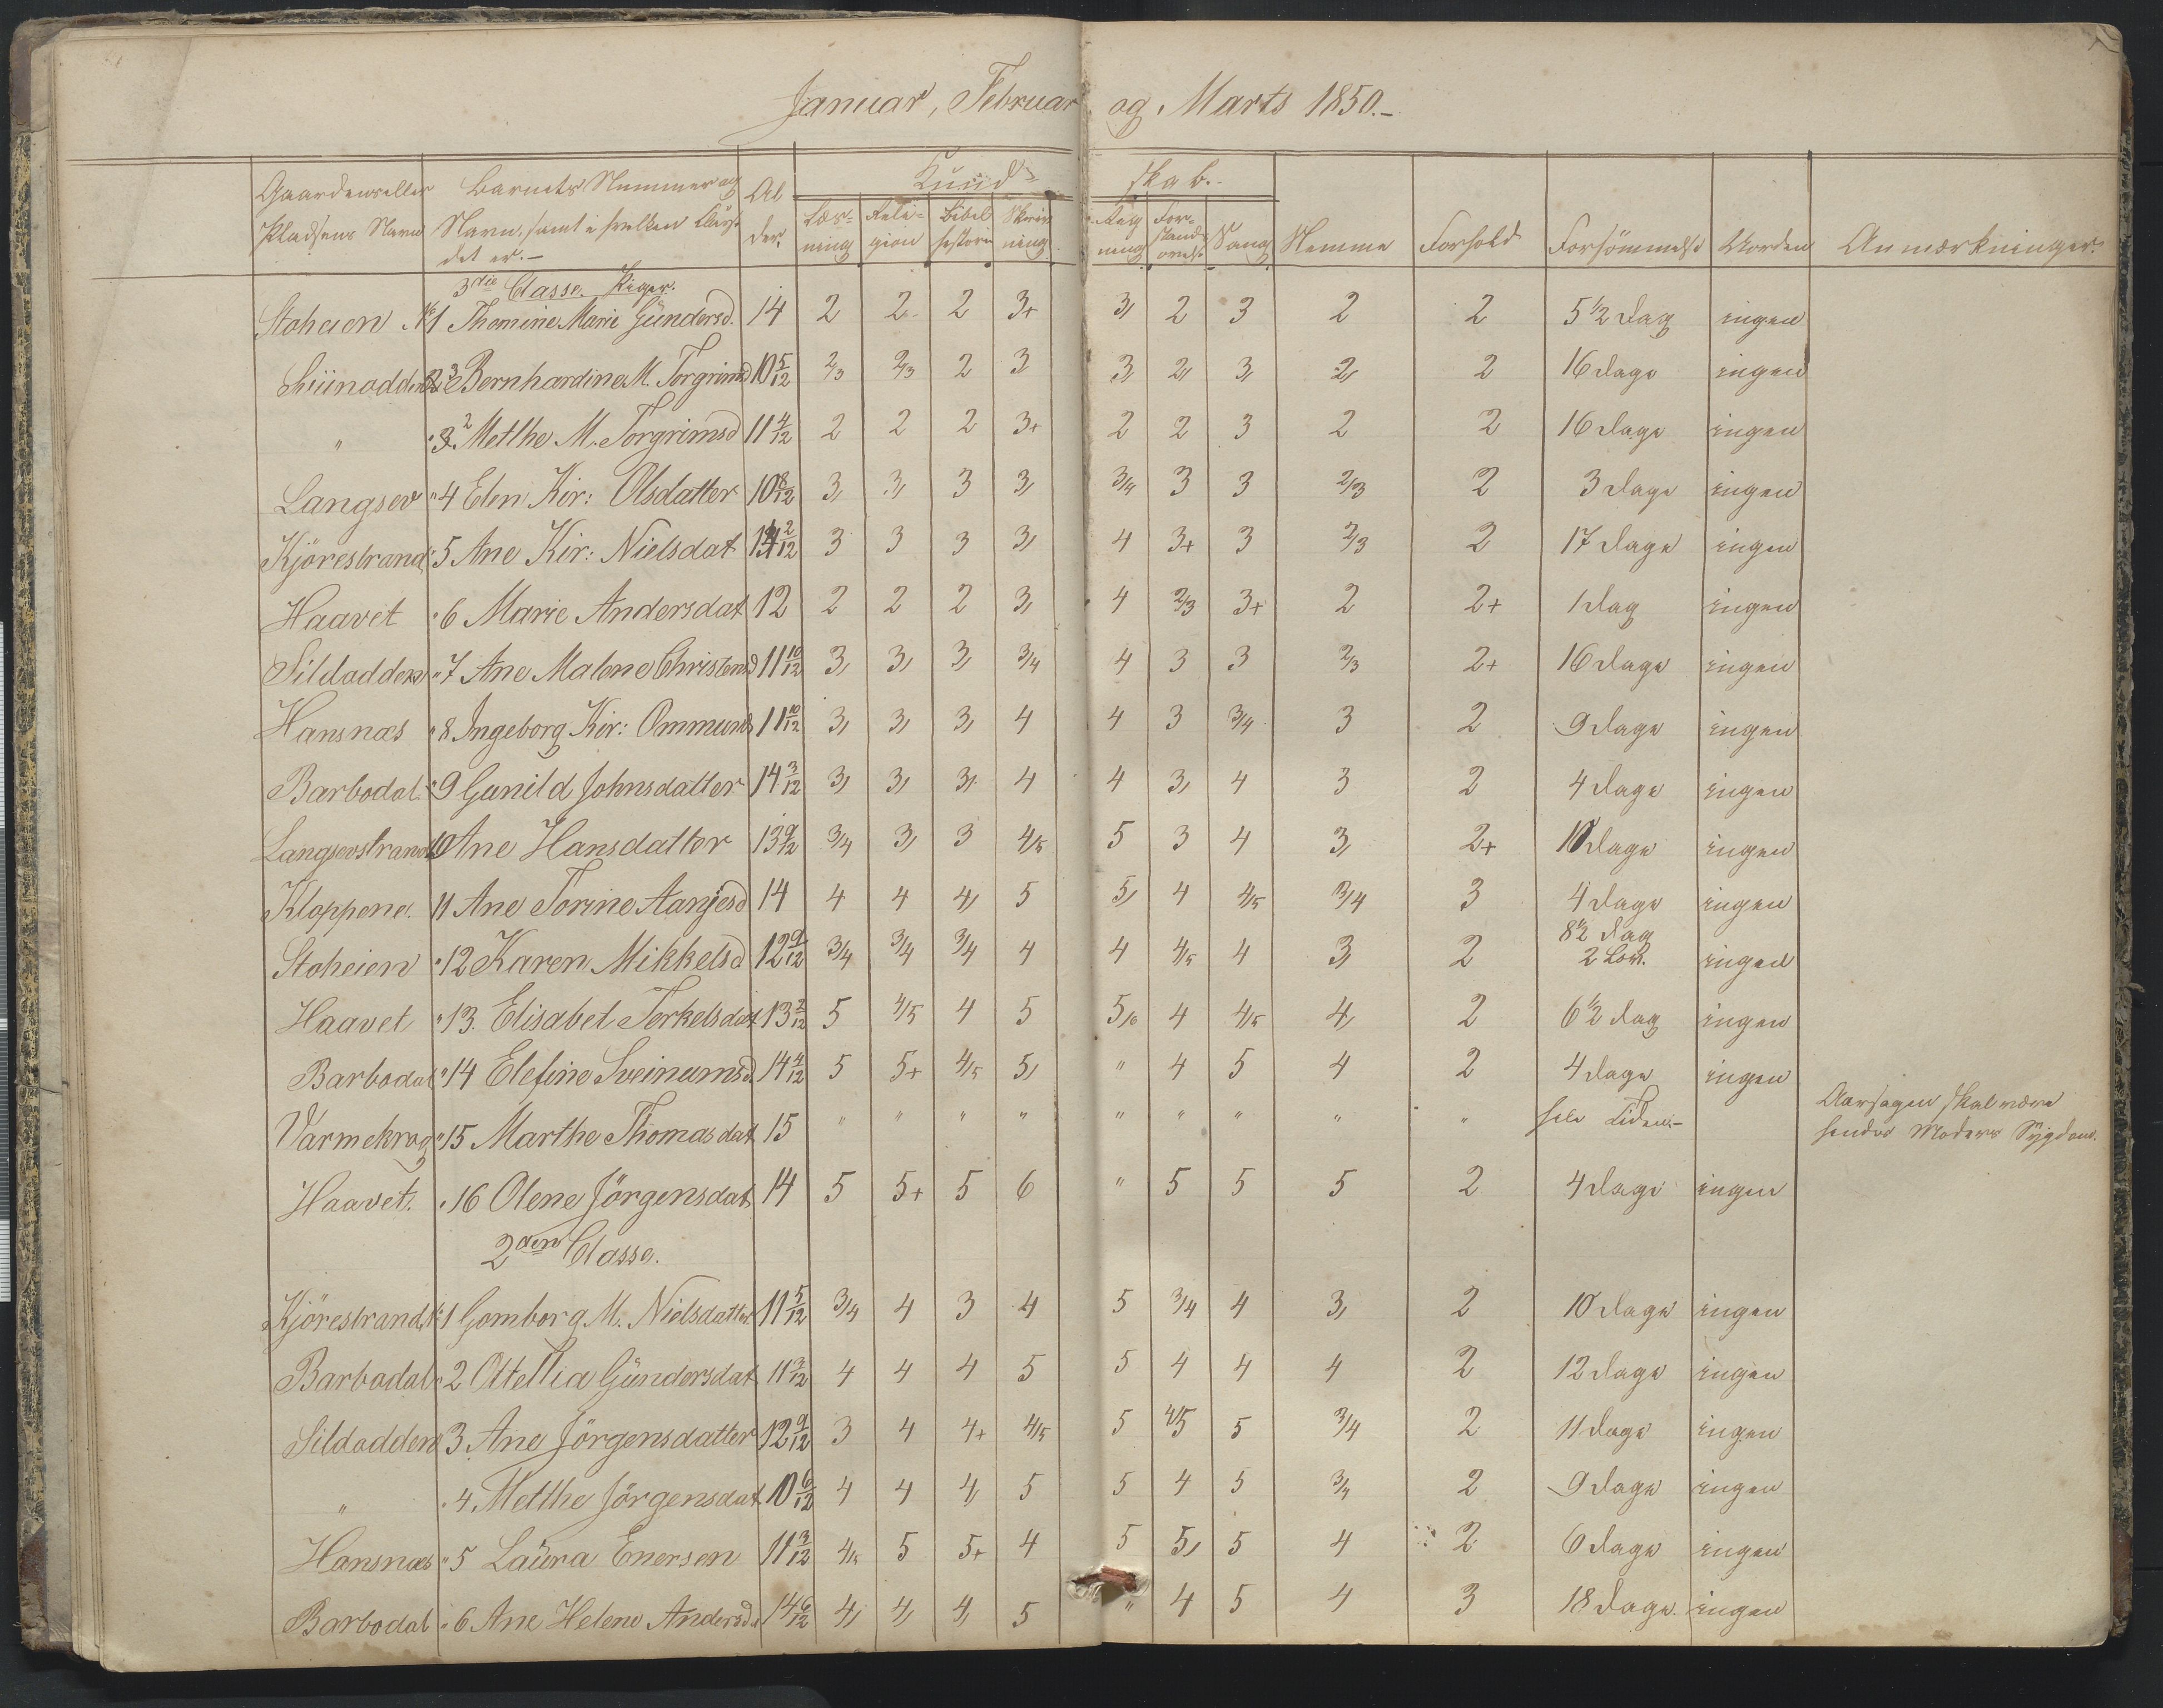 Januar, Februar og Marts 1850.-
Gaardens eller Pladsens Navn | Barnets Nummer og Navn, samt i hvilken Classe det er.- | Alder. | Kundskab.. | Nemme | Forhold | Forsömmelse | Anmærkninger.
Læsning | Religion | Bibelhistorie | Skrivning | Regning | Forstandsøvelse | Sang
3die Classe. Piger.
Stoheien No 1 Thomine Marie Gündersd. 14 2 2 2 3+ 3, 2 3 2 2 5 1/2 Dag ingen
3 Bernhardine M. Torgrimsd 10 5/12 2/3 2/3 2 3 3, 2, 3, 2, 2 16 Dage ingen
" " 3. 2 Methe M. Torgrimsd 11 4/12 2 2 2 3+ 2 2 3 2 2 16 Dage ingen
Langsev " 4 Elen Kir: Olsdatter 10 8/12 3, 3, 3 3, 3/4 3 3 2/3 2 3 Dage ingen
Kjörestrand " 5 Ane Kir: Nielsdat 2/12 3 3 3 3, 4 3+ 3 2/3 2 17 Dage ingen
Haavet " 6 Marie Andersdat 12 2 2 2 3, 4 2/3 3+ 2 2+ 1 Dag ingen
Sildodden " 7 Ane Malene Christensd 11 10/12 3, 3, 3, 3/4 4 3 3 2/3 2+ 16 Dage ingen
Hansnæs " 8 Ingeborg Kir: Ommunds 11 10/12 3, 3, 3, 4 4 3 3/4 3 2 9 Dage ingen
Barbodal " 9 Gunild Johnsdatter 14 3/12 3, 3, 3, 4 4 3, 4 3 2 4 Dage ingen
Langsevstrand 10 Ane Hansdatter 13 9/12 3/4 3, 3 4/5 5 3 4 3, 2+ 10 Dage ingen
Kloppene. 11 Ane Torine Aanjesd 14 4 4 4, 5 5, 4 4/5 3/4 3 4 Dage ingen
Stoheien " 12 Karen Mikkelsd 12 9/12 3/4 3/4 3/4 4 4 4/5 4 3, 2 8 1/2 Dag ingen
Haavet " 13. Elisabet Terkelsdat 13 2/12 5 4/5 4 5 5/6 4 4/5 4, 2 6 1/2 Dag ingen
Barbodal " 14 Elefine Sveinumsd. 14 4/12 5 5+ 4/5 5, " 4 5 4 2 4 Dage ingen
Varmekrog " 15 Marthe Thomasdat 15 " " " " " " " " " hele Tiden.- Aarsagen skal være
hendes Moders Sygdom.
Haavet. " 16 Olene Jörgensdat 14 5 5+ 5 6 " 5 5 5 2 4 Dage ingen
2den Classe.
Kjörestrand No 1 Gomborg M. Nielsdatter 11 5/12 3/4 4 3 4 5 3/4 4 3, 2 10 Dage ingen
Barbodal " 2 Ottellia Gündersdat 11 3/12 4 4 4 5 5 4 4 4 2 12 Dage ingen
Sildodden 3 Ane Jörgensdatter 12 9/12 3 4 4+ 4/5 5 4/5 5 3/4 2 11 Dage ingen
" " 4. Methe Jörgensdat 10 6/12 4 4 4, 5 5 4 5 3/4 2 9 Dage ingen
Hansnæs " 5 Laüra Enersen 11 3/12 4/5 5 5+ 4 5 5, 5 4 2 6 Dage ingen
Barbodal " 6 Ane Helene Andersd 14 6/12 4, 4, 4, 5 " 4 5 4 3 18 Dage. ingen